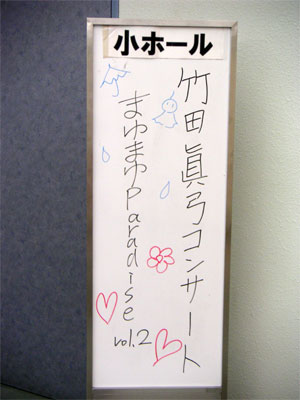 小ホール
竹田眞弓コンサート
まゆまゆParadise vol.2